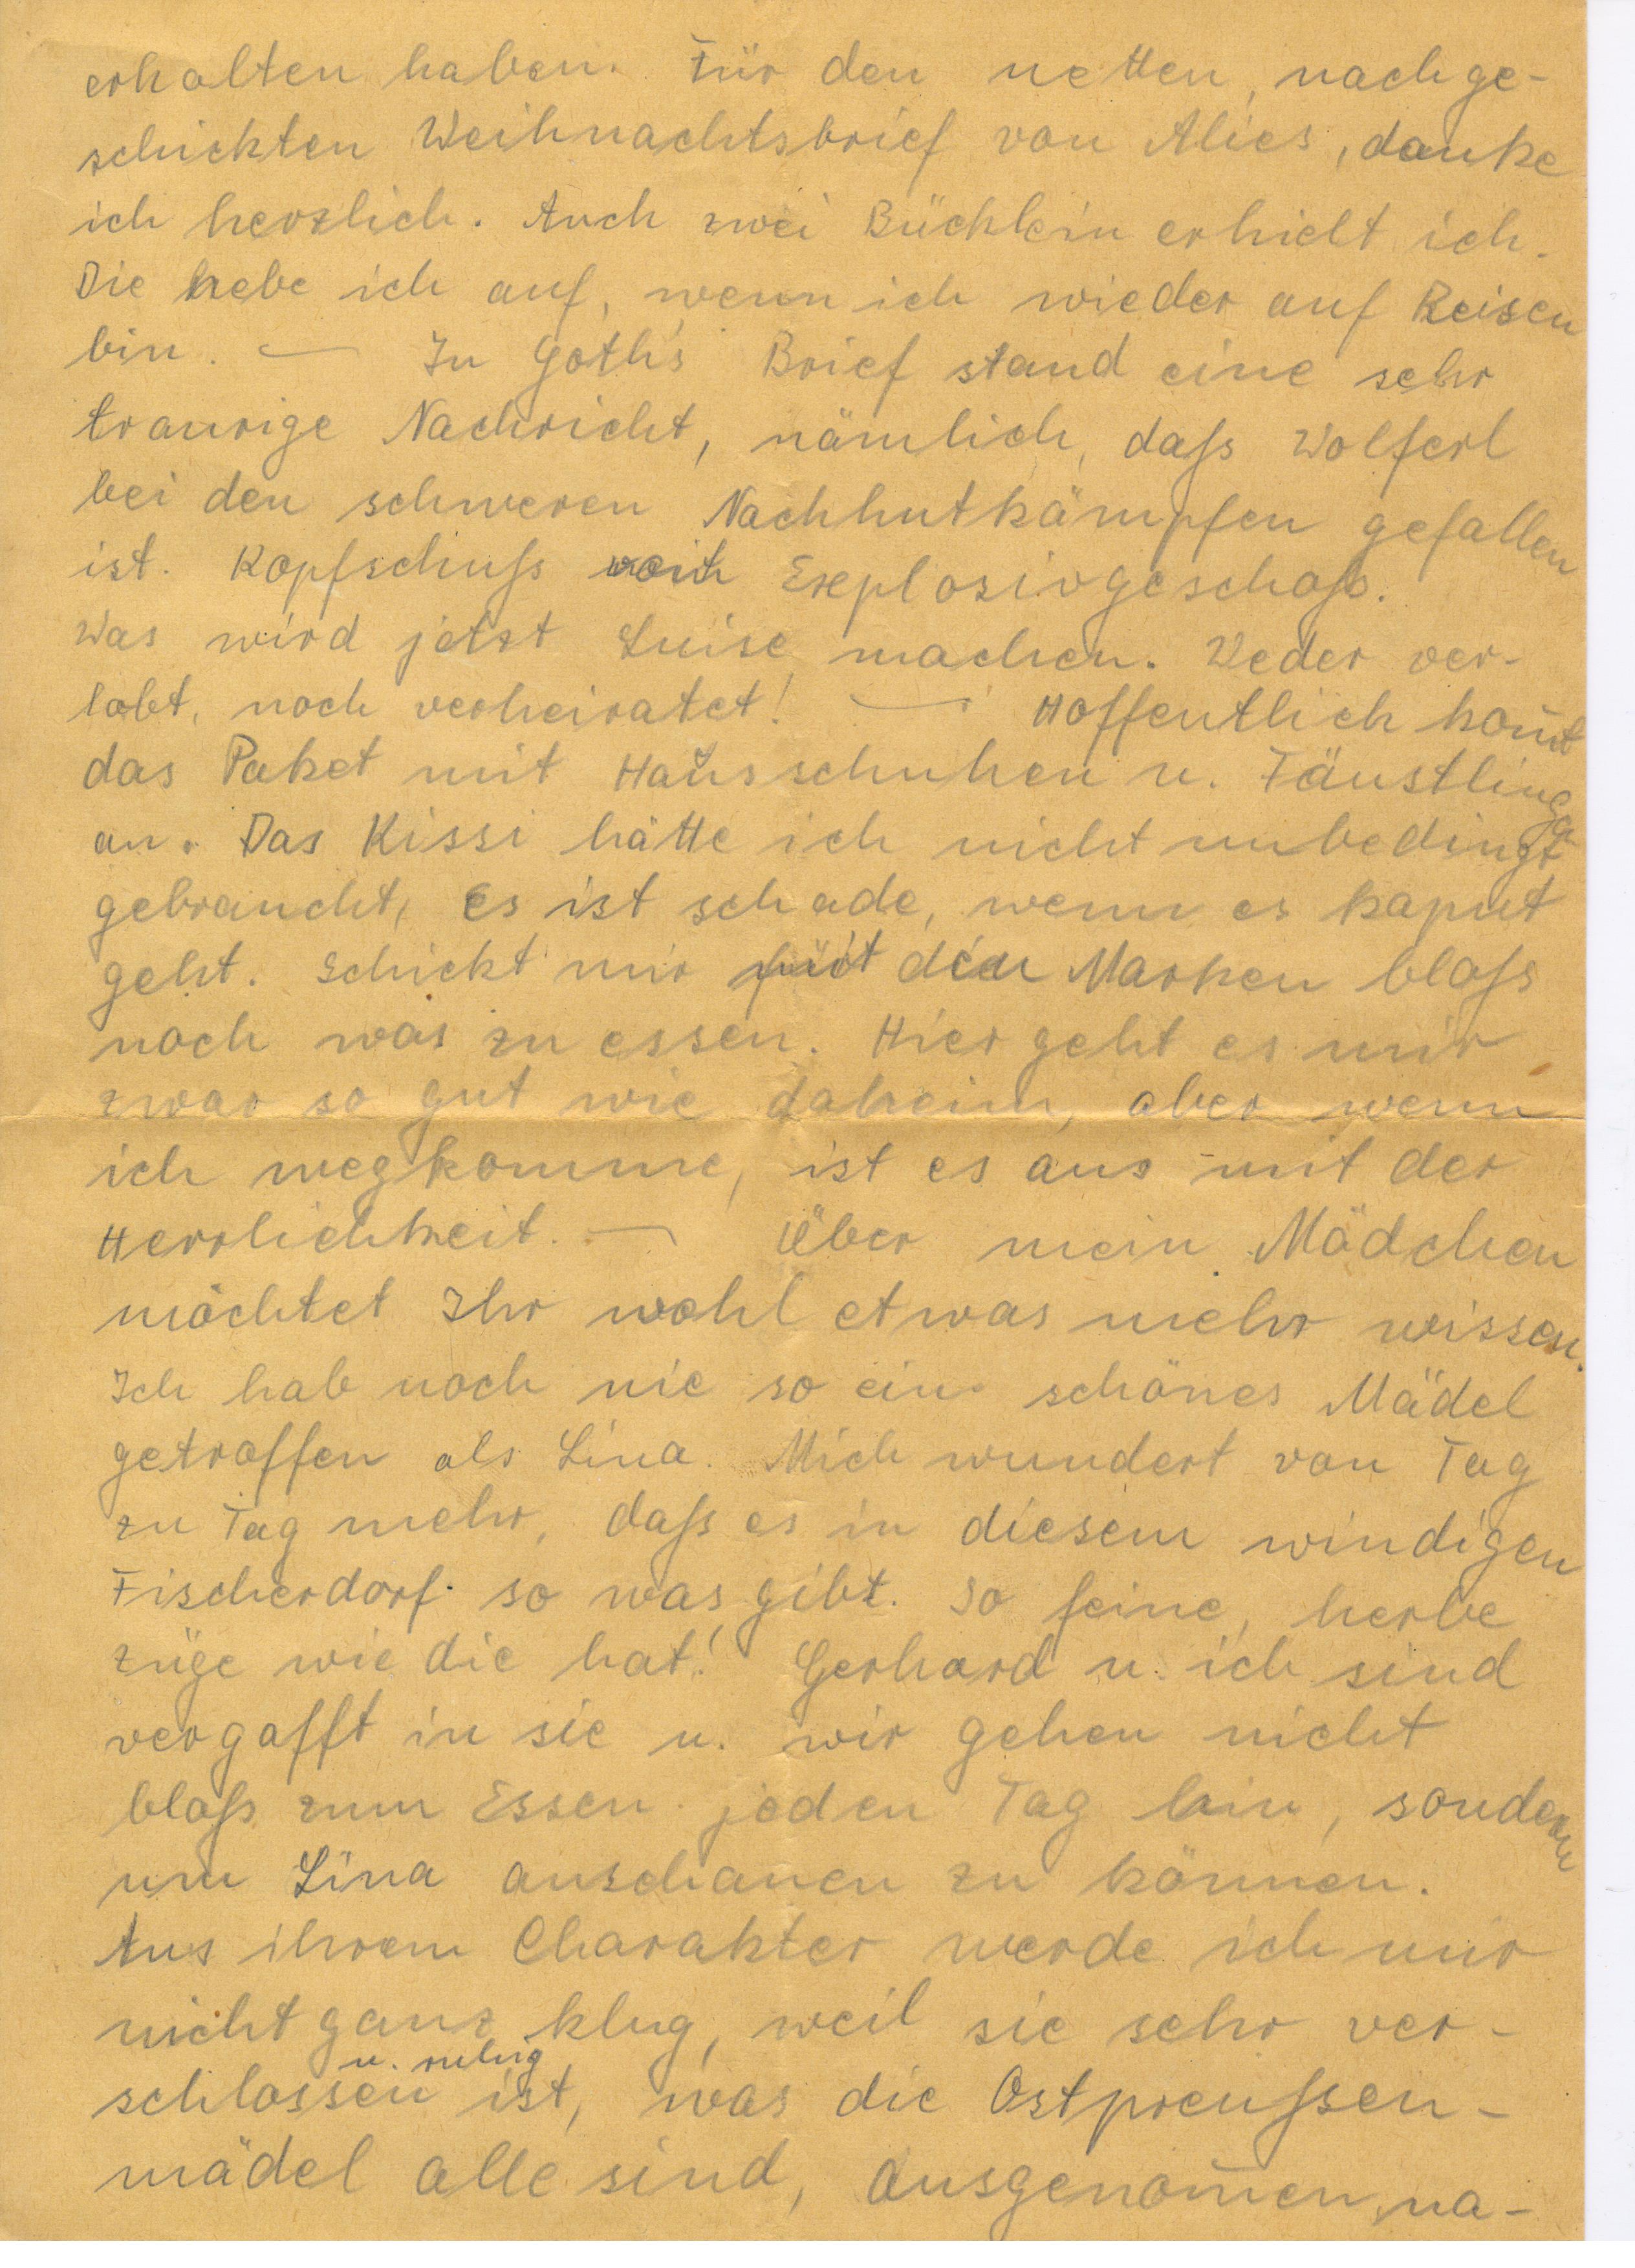 erhalten haben. Für den netten, nachge-
schickten Weihnachtsbrief von Alies, danke
ich herzlich. Auch zwei Büchlein erhielt ich.
Die hebe ich auf, wenn ich wieder auf Reisen
bin. — In Goth's Brief stand eine sehr
traurige Nachricht, nämlich, daß Wolferl
bei den schweren Nachhutkämpfen gefallen
ist. Kopfschuß mit Explosivgeschoß.
Was wird jetzt Luise machen. Weder ver-
lobt, noch verheiratet! — Hoffentlich kom̄t
das Paket mit Hausschuhen u. Fäustlinge
an. Das Kissi hätte ich nicht unbedingt
gebraucht, es ist schade, wenn es kaput
geht. Schickt mir mit den Marken bloß
noch was zu essen. Hier geht es mir
zwar so gut wie daheim, aber wenn
ich wegkomme, ist es aus mit der
Herrlichkeit. — Über mein Mädchen
möchtet Ihr wohl etwas mehr wissen.
Ich hab noch nie so ein schönes Mädel
getroffen als Lina. Mich wundert von Tag
zu Tag mehr, daß es in diesem windigen
Fischerdorf so was gibt. So feine, herbe
Züge wie die hat! Gerhard u. ich sind
vergafft in sie u. wir gehen nicht
bloß zum Essen jeden Tag hin, sondern
um Lina anschauen zu können.
Aus ihrem Charakter werde ich mir
nicht ganz klug, weil sie sehr ver-
schlossen u. ruhig ist, was die Ostpreußen-
mädel alle sind, ausgenom̄en, na-